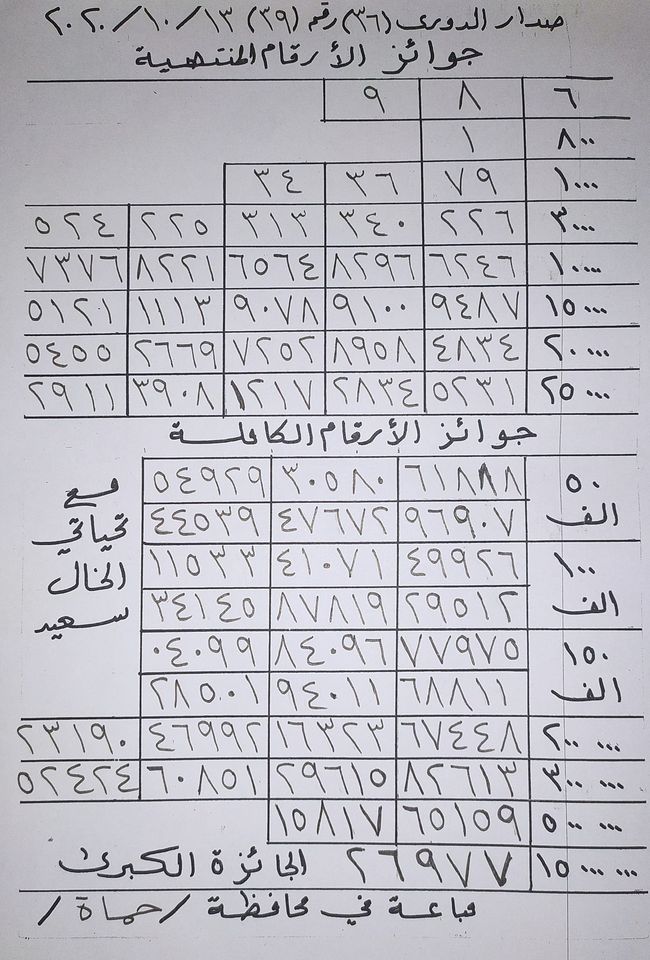 صدار الدوري (٣٦) رقم (٣٩) ١٣/١٠/٢٠٢٠
جوائز الأرقام المنتهية
٦ ٨ ٩
٨٠٠ ١
١٠٠٠ ٧٩ ٣٦ ٣٤
٣٠٠٠ ٢٢٦ ٣٤٠ ٣١٣ ٢٢٥ ٥٢٤
١٠٠٠٠ ٦٢٤٦ ٨٢٩٦ ٦٥٦٤ ٨٢٢١ ٧٣٧٦
١٥٠٠٠ ٩٤٨٧ ٩١٠٠ ٩٠٧٨ ١١١٣ ٥١٢١
٢٠٠٠٠ ٤٨٣٤ ٨٩٥٨ ٧٢٥٢ ٢٦٦٩ ٥٤٥٥
٢٥٠٠٠ ٥٢٣١ ٢٨٣٤ ١٢١٧ ٣٩٠٨ ٢٩١١
جوائز الأرقام الكاملة
٥٠ الف ٦١٨٨٨ ٣٠٥٨٠ ٥٤٩٢٩
٩٦٩٠٧ ٤٧٦٧٢ ٤٤٥٣٩
١٠٠ الف ٤٩٩٢٦ ٤١٠٧١ ١١٥٣٣
٢٩٥١٢ ٨٧٨١٩ ٣٤١٤٥
١٥٠ الف ٧٧٩٧٥ ٨٤٠٩٦ ٠٤٠٩٩
٦٨٨١١ ٩٤٠١١ ٢٨٥٠١
مع
تحياتي
الخال
سعيد
٢٠٠٠٠٠ ٦٧٤٤٨ ١٦٣٢٣ ٤٦٩٩٢ ٢٣١٩٠
٣٠٠٠٠٠ ٨٢٦١٣ ٢٩٦١٥ ٦٠٨٥١ ٥٢٤٢٤
٥٠٠٠٠٠ ٦٥١٥٩ ١٥٨١٧
١٥٠٠٠٠٠٠ ٢٦٩٧٧ الجائزة الكبرى
مباعة في محافظة /حماة/